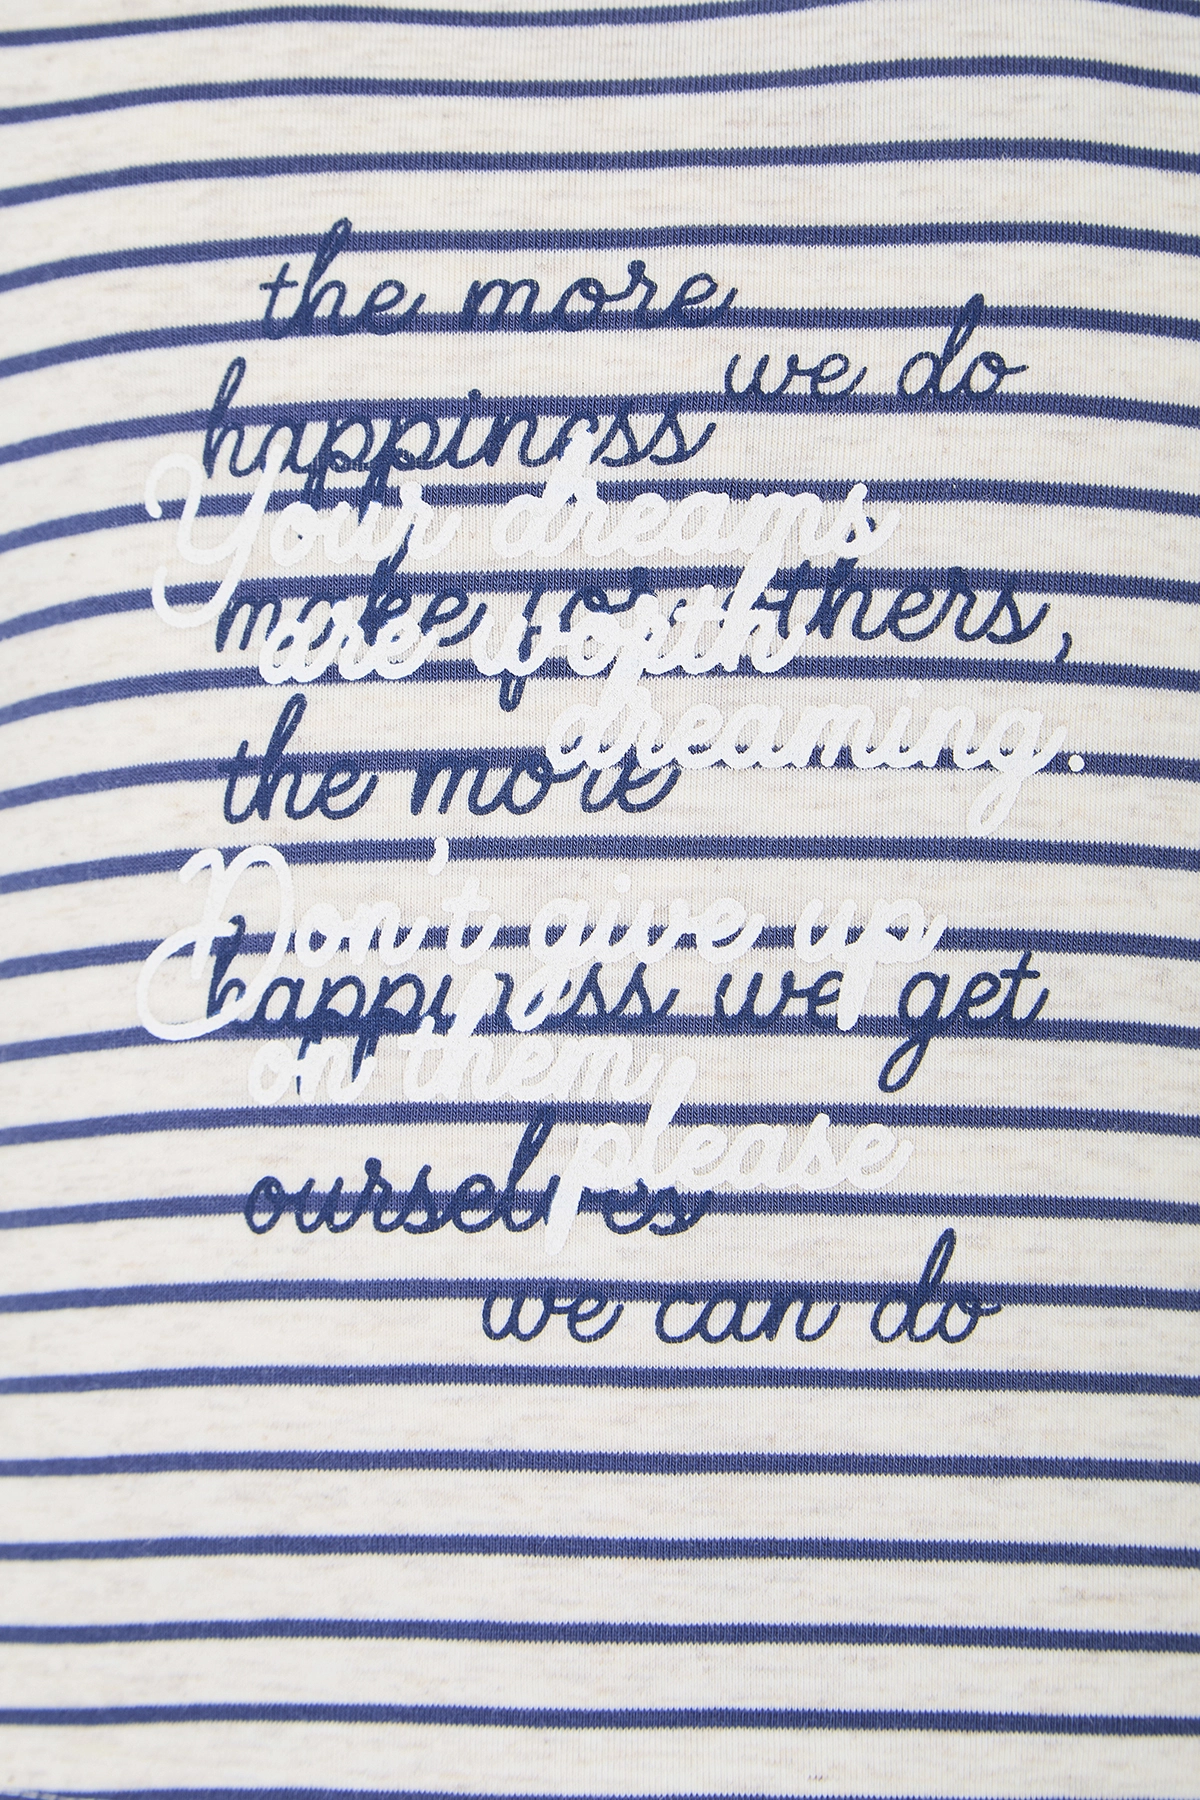 the more
we do
happiness
Your dreams
make for others,
are worth
dreaming.
the more
Don't give up
happiness we get
on them,
please
ourselves
we can do